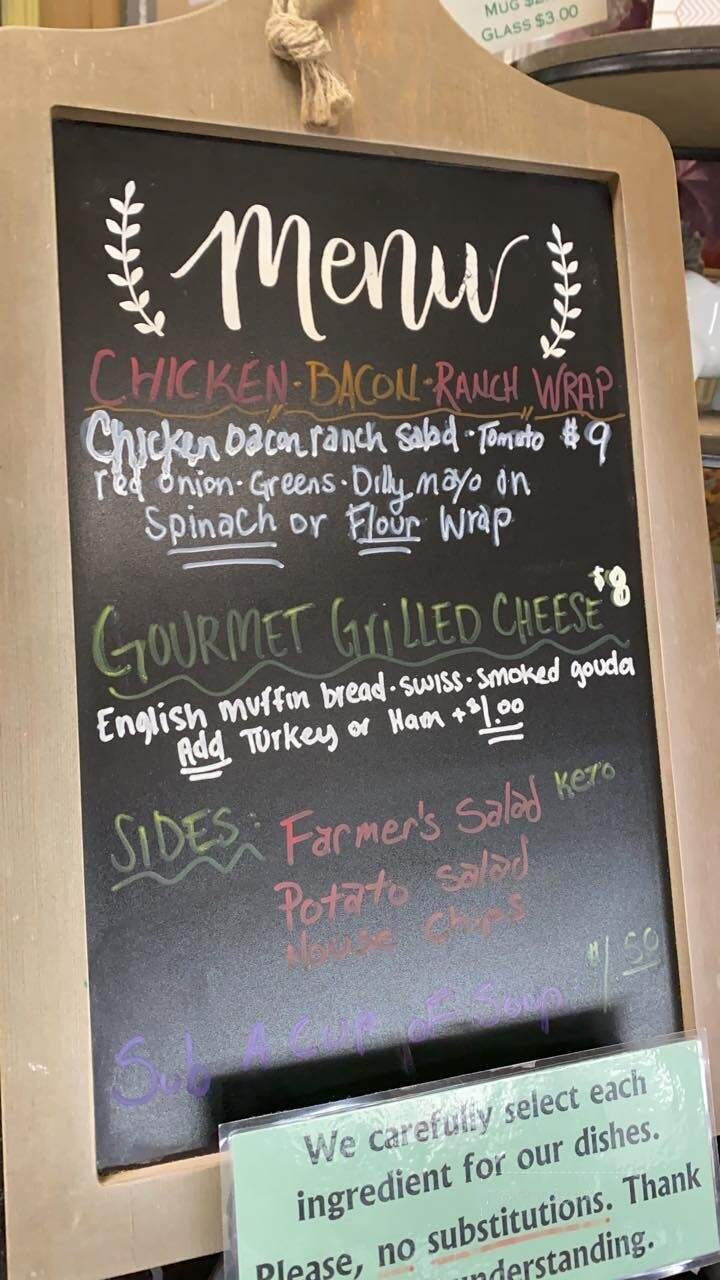 MUG
GLASS $3.00
Menu
CHICKEN · BACON · RANCH WRAP
Chicken bacon ranch salad · Tomato $9
red onion · Greens · Dilly mayo on
Spinach or Flour Wrap
GOURMET GRILLED CHEESE $8
English muffin bread · swiss · smoked gouda
Add Turkey or Ham +$1.00
SIDES: Farmer's Salad Keto
Potato salad
House Chips
Sub A Cup of Soup: $1.50
We carefully select each
ingredient for our dishes.
Please, no substitutions. Thank
understanding.